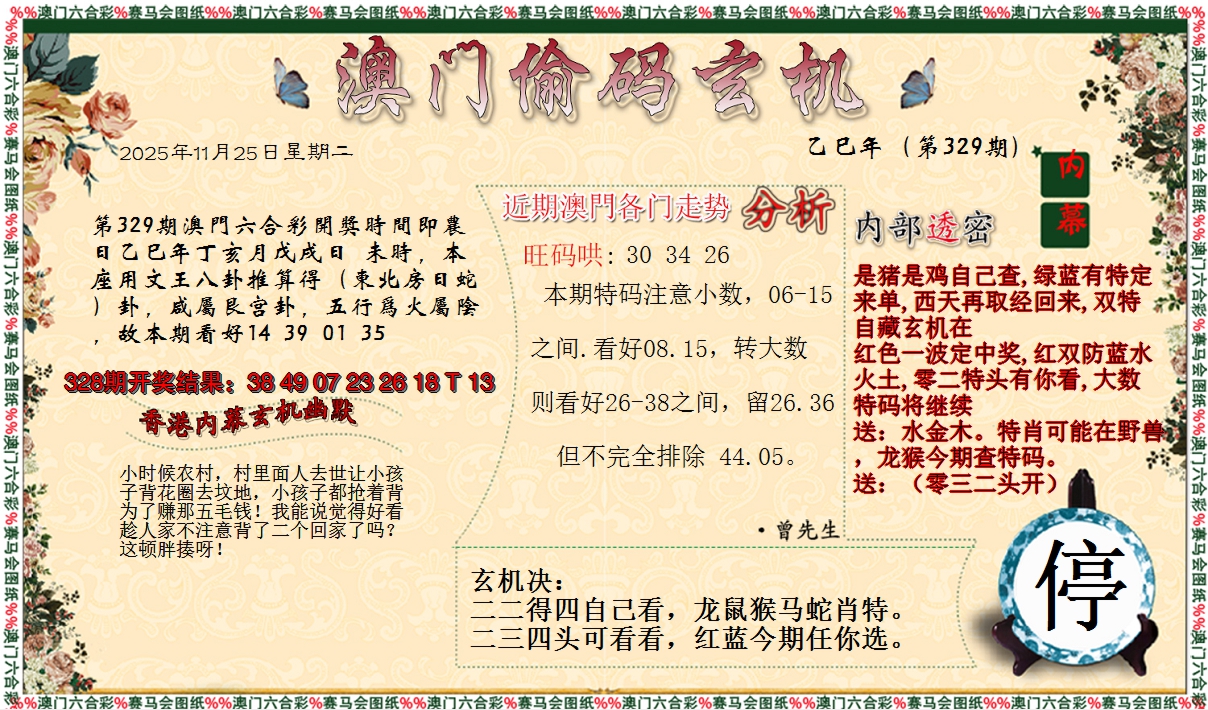 %%澳门六合彩%赛马会图纸%%澳门六合彩%赛马会图纸%%澳门六合彩%赛马会图纸%%澳门六合彩%赛马会图纸%%澳门六合彩%赛马会图纸%%澳门六合彩%赛马会图纸%%
澳门偷码玄机
2025年11月25日星期二
乙巳年（第329期）
内
幕
第329期澳門六合彩開獎時間即農
日乙巳年丁亥月戊戌日 未時，本
座用文王八卦推算得（東北房日蛇
）卦，咸屬艮宫卦，五行爲火屬陰
，故本期看好14 39 01 35
328期开奖结果：38 49 07 23 26 18 T 13
香港内幕玄机幽默
小时候农村，村里面人去世让小孩
子背花圈去坟地，小孩子都抢着背
为了赚那五毛钱！我能说觉得好看
趁人家不注意背了二个回家了吗？
这顿胖揍呀！
近期澳門各门走势 分析
旺码哄: 30 34 26
本期特码注意小数，06-15
之间.看好08.15，转大数
则看好26-38之间，留26.36
但不完全排除 44.05。
·曾先生
内部透密
是猪是鸡自己查,绿蓝有特定
来单,西天再取经回来,双特
自藏玄机在
红色一波定中奖,红双防蓝水
火土,零二特头有你看,大数
特码将继续
送：水金木。特肖可能在野兽
，龙猴今期查特码。
送：（零三二头开）
玄机决：
二二得四自己看，龙鼠猴马蛇肖特。
二三四头可看看，红蓝今期任你选。
停
%%澳门六合彩%赛马会图纸%%澳门六合彩%赛马会图纸%%澳门六合彩%赛马会图纸%%澳门六合彩%赛马会图纸%%澳门六合彩%赛马会图纸%%澳门六合彩%赛马会图纸%%